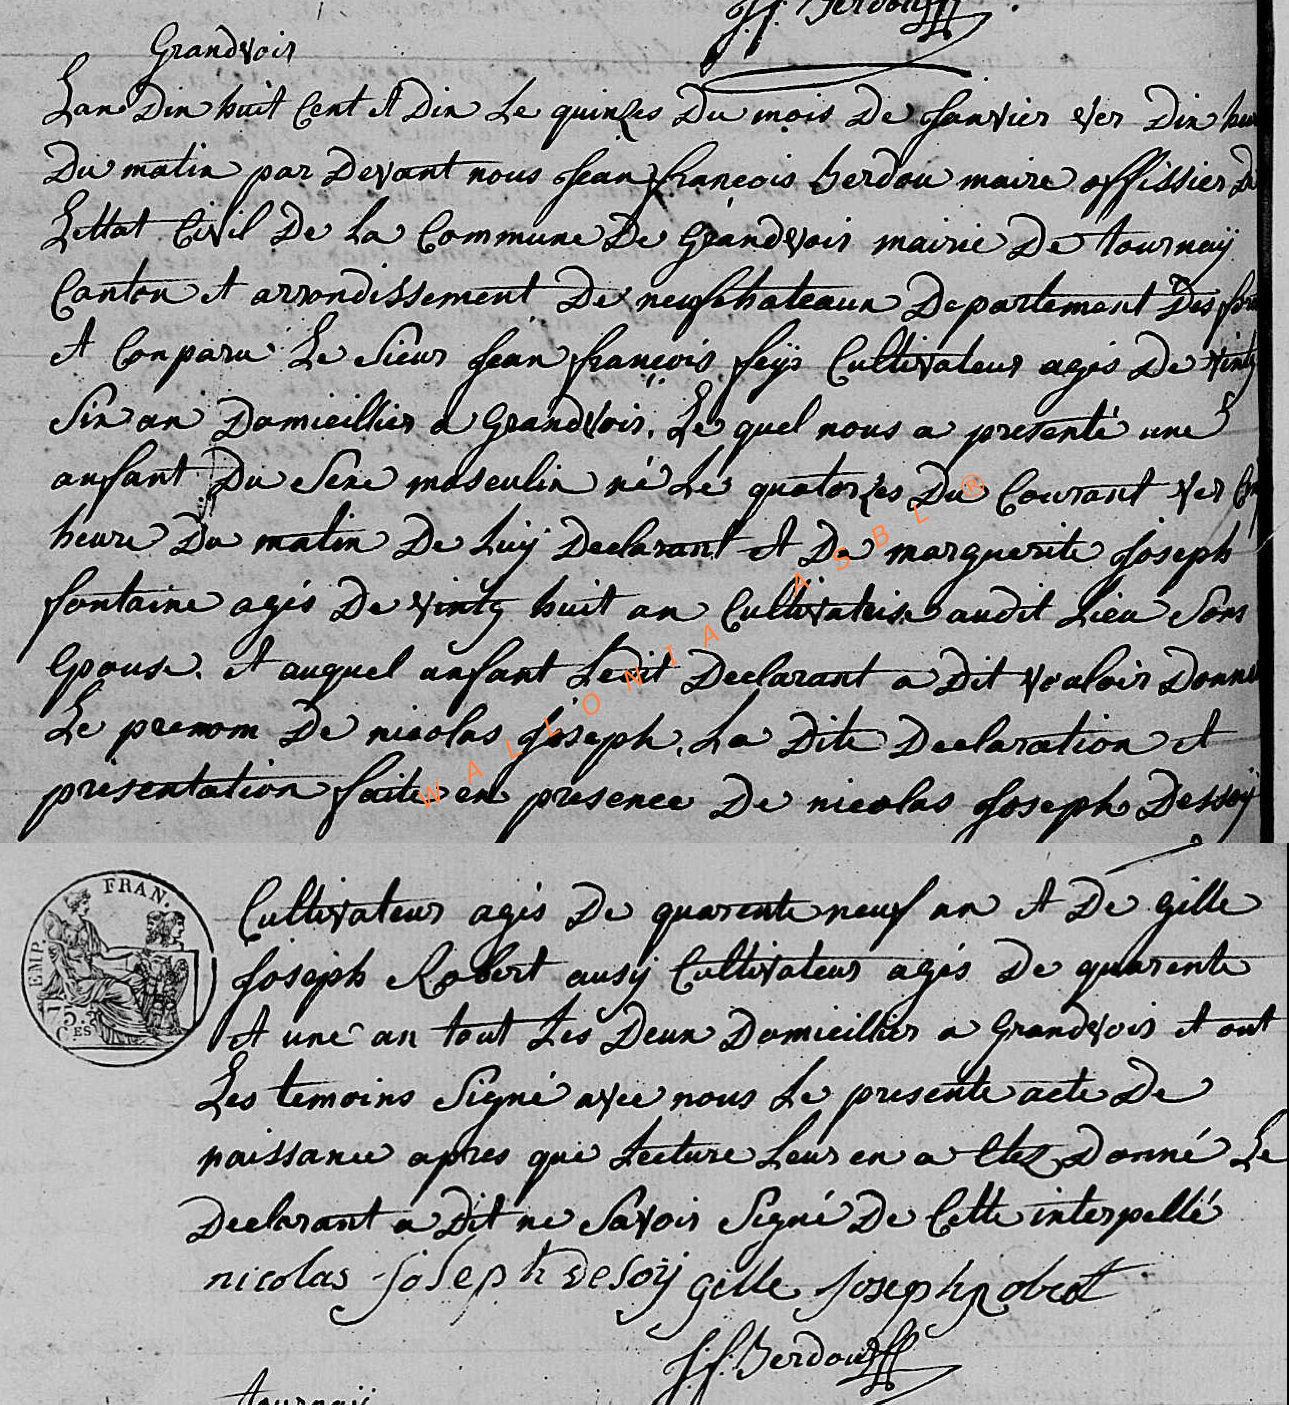 J. f. Berdou
Grandvoir
Lan Dix huit Cent et Dix Le quinzes Du mois De Janvier ver Dix heu
Du matin par Devant nous Jean françois berdou maire offissier De
Lettat Civil De La Commune De Grandvoir mairie De tournaÿ
Canton et arrondissement De neufchateaux Departement Des for
et Conparu Le Sieur Jean françois feÿs Cultivateur agés De vintg
Six an Domicillier a Grandvoir. Le quel nous a presenté une
anfant Du Sexe masculin né Le quatorzes Du Courant ver
heure Du matin De Luÿ Declarant et De marguerite Joseph
fontaine agés De vintg huit an Cultivatrise audit Lieu Sons
Epouse. et auquel anfant Ledit Declarant a Dit vouloir Donner
Le prenom De nicolas Joseph. La Dite Declaration et
présentation faite en presence De nicolas Joseph Dessoÿ
WALLONIA ASBL ®
EMP. FRAN.
75 C.ES
Cultivateur agés De quarente neuf an et De gille
Joseph Robert ausÿ Cultivateur agés De quarente
et une an tout Les Deux Domicillier a Grandvoir et ont
Les temoins Signé avec nous Le presente acte De
naissance apres que Lecture Leur en a Etez Donné Le
Declarant a Dit ne Savoir Signé De Cette interpellé
nicolas joseph desoÿ gille Joseph robert
J. f. Berdou
tournaÿ